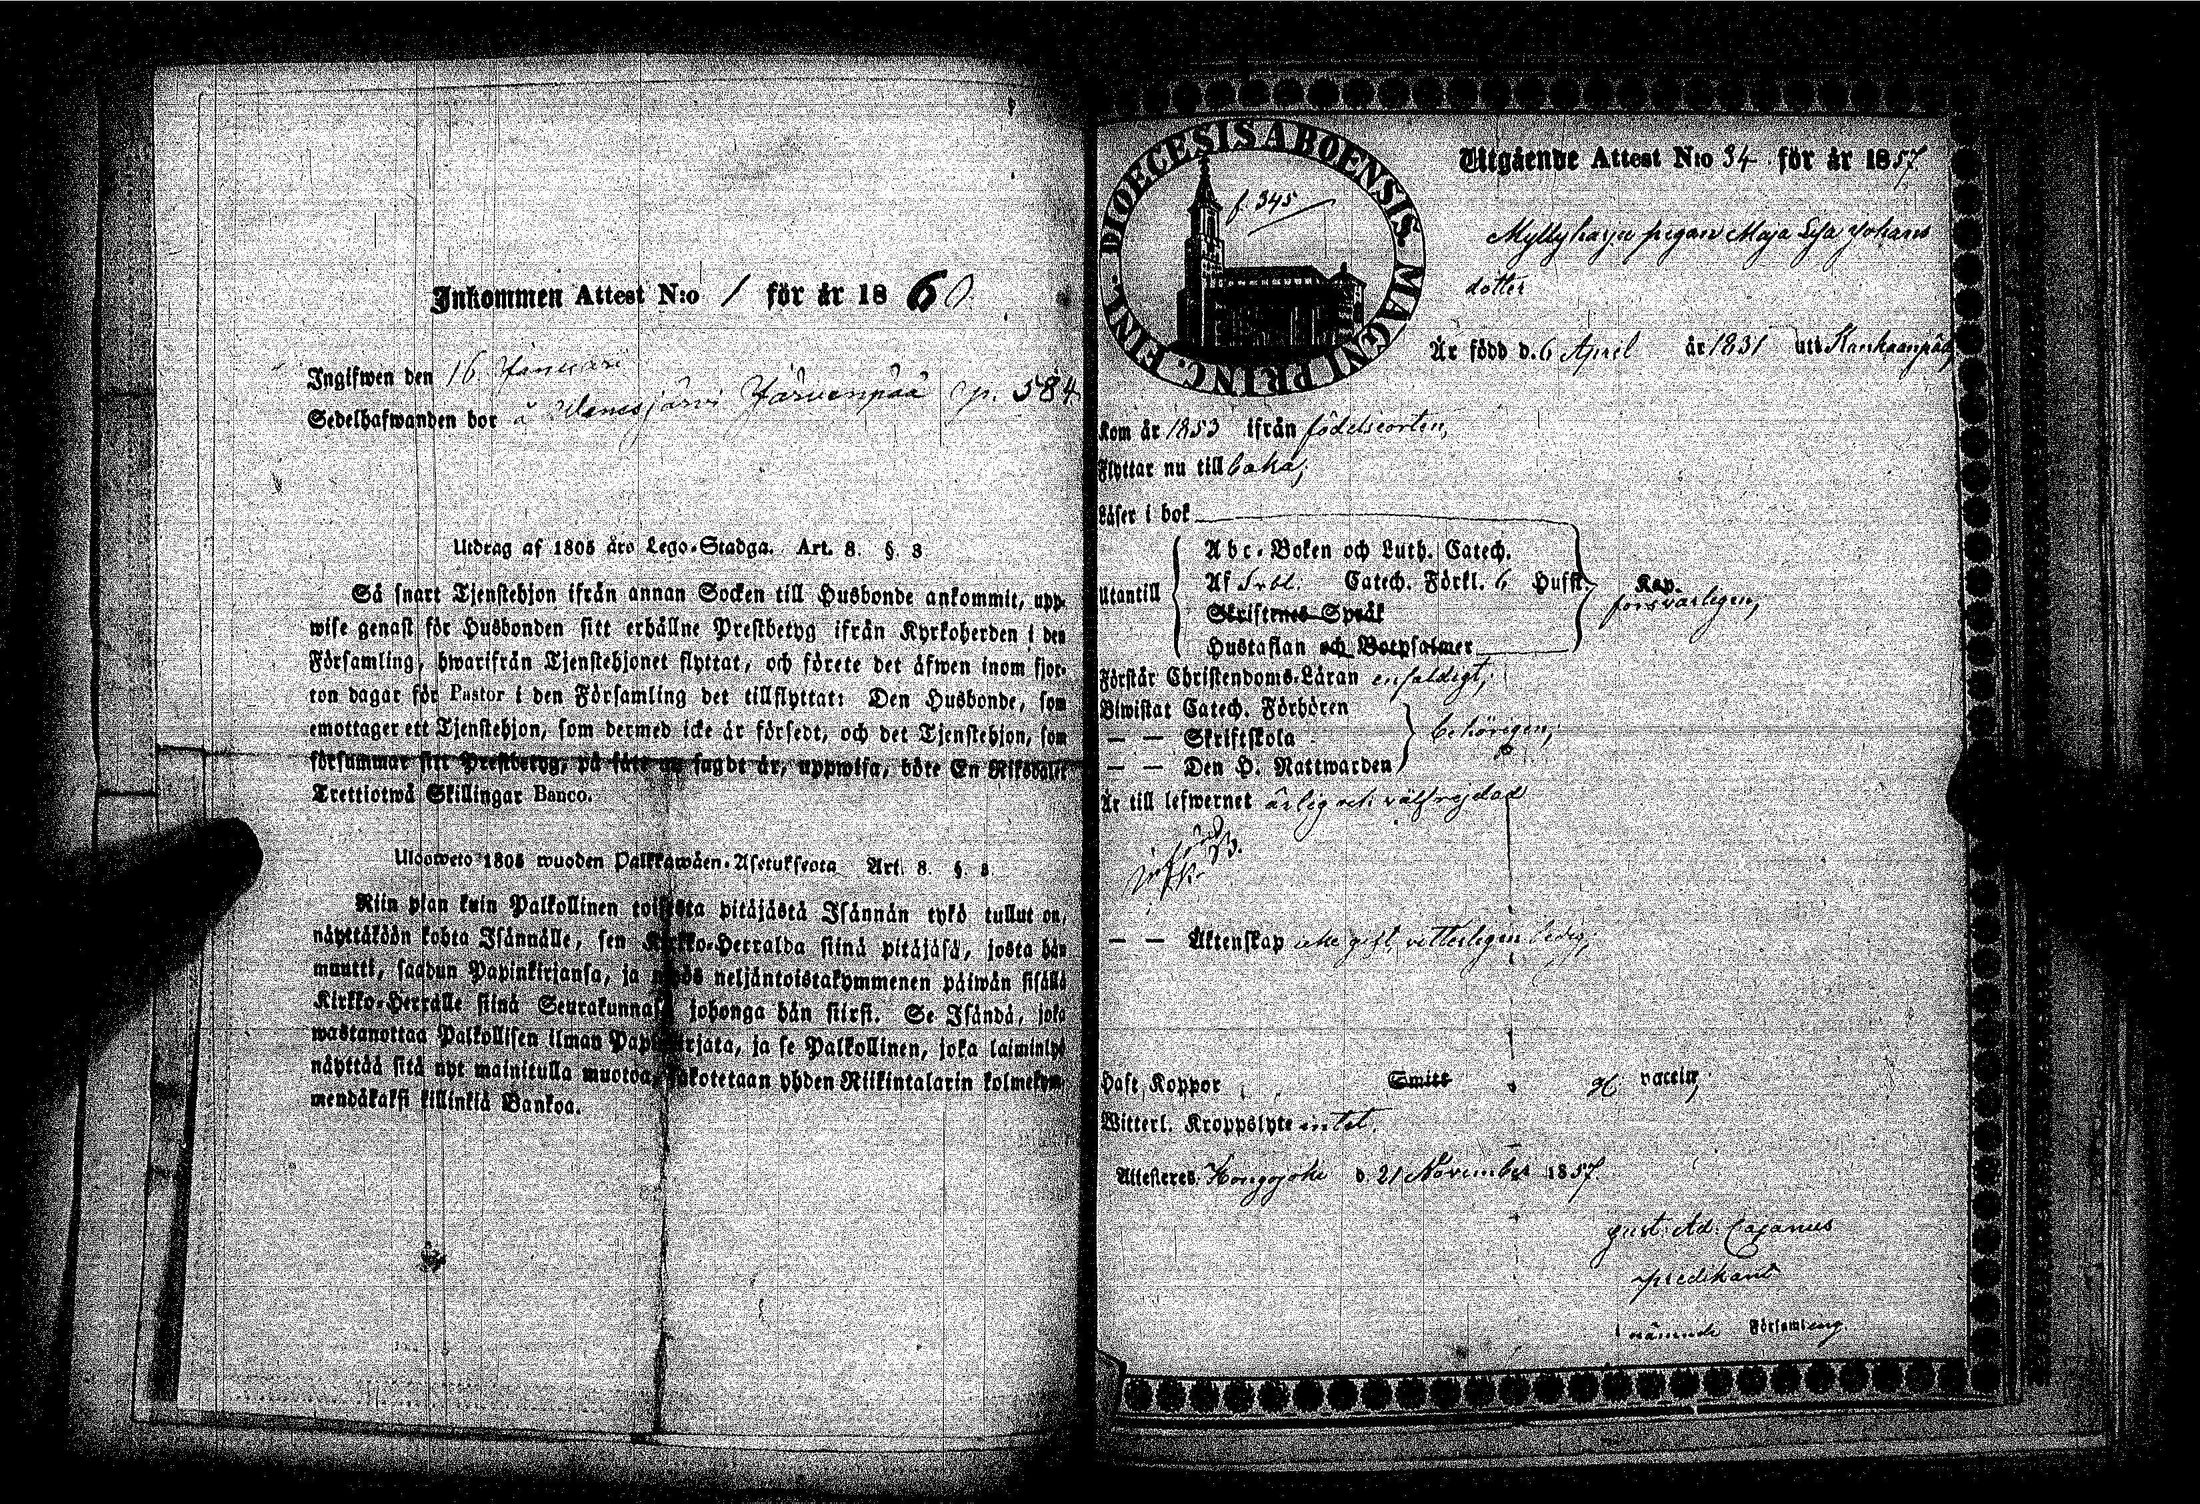 Inkommen Attest N:o 1 för år 1860.
Ingifwen den 16 Januari
Sedelhafwanden bor å Järvenpää p. 584
Utdrag af 1805 års Lego-Stadga. Art. 8. §. 3
Så snart Tjenstehjon ifrån annan Socken till Husbonde ankommit, upp-
wise genast för Husbonden sitt erhållne Prestbetyg ifrån Kyrkoherden i den
Församling, hwarifrån Tjenstehjonet flyttat, och förete det äfwen inom fjor-
ton dagar för Pastor i den Församling det tillflyttat: Den Husbonde, som
emottager ett Tjenstehjon, som dermed icke är försedt, och det Tjenstehjon, som
försummar sitt Prestbetyg, på sätt nu sagdt är, uppwisa, böte En Riksdaler
Trettiotwå Skillingar Banco.
Ulosweto 1805 wuoden Palkkawäen-Asetuksesta Art. 8. §. 3
Niin pian kuin Palkollinen toisesta pitäjästä Isännän tykö tullut on,
näyttäköön kohta Isännälle, sen Kirkko-Herralda siinä pitäjäsä, josta hän
muutti, saadun Papinkirjansa, ja myös neljäntoistakymmenen päiwän sisällä
Kirkko-Herralle siinä Seurakunnasa johonga hän siirsi. Se Isändä, joka
wastanottaa Palkollisen ilman Papinkirjata, ja se Palkollinen, joka laiminlyö
näyttää sitä nyt mainitulla muotoa, sakotetaan yhden Riikintalarin kolmekym-
mendäkaksi killinkiä Bankoa.
DIOECESIS ABOENSIS. MAGNI PRINC. FINL.
f. 345
Utgående Attest N:o 34 för år 1857.
Myllyharju pigan Maja Lisa Johans
dotter
Är född d. 6 April år 1831 uti Kankaanpää,
Kom år 1853 ifrån födelseorten,
Flyttar nu till baka,
Läser i bok
Utantill
Abc-Boken och Luth. Catech.
Af Srbl. Catech. Förkl. 6 Hufst. Kap. försvarligen,
Skriftenes Språk
Hustaflan och Botpsalmer
Förstår Christendoms-Läran enfaldigt,
Biwistat Catech. Förhören
— — Skriftskola behörigen,
— — Den H. Nattwarden
Är till lefwernet ärlig och välfrejdad
— — Äktenskap icke gift, vitterligen ledig,
Haft Koppor Smitt vaccin,
Witterl. Kroppslyte intet.
Attesteras Hongojoki d. 21 November 1857.
Gust. Ad. Cajanus
predikant
i nämnde Församling.